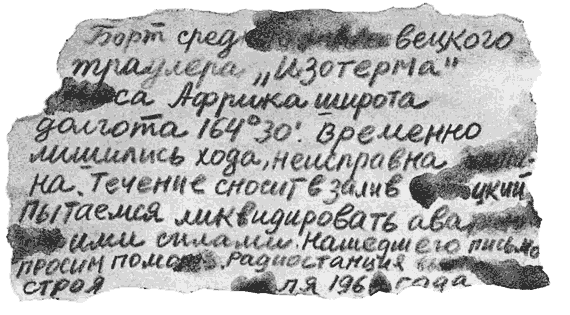 Борт сред вецкого
траулера „Изотерма“
са Африка широта
долгота 164°30'. Временно
лишились хода, неисправна
на. Течение сносит в залив цкий
пытаемся ликвидировать ава
ими силами. Нашедшего письмо
просим помо . Радиостанция вы
строя ля 196 года